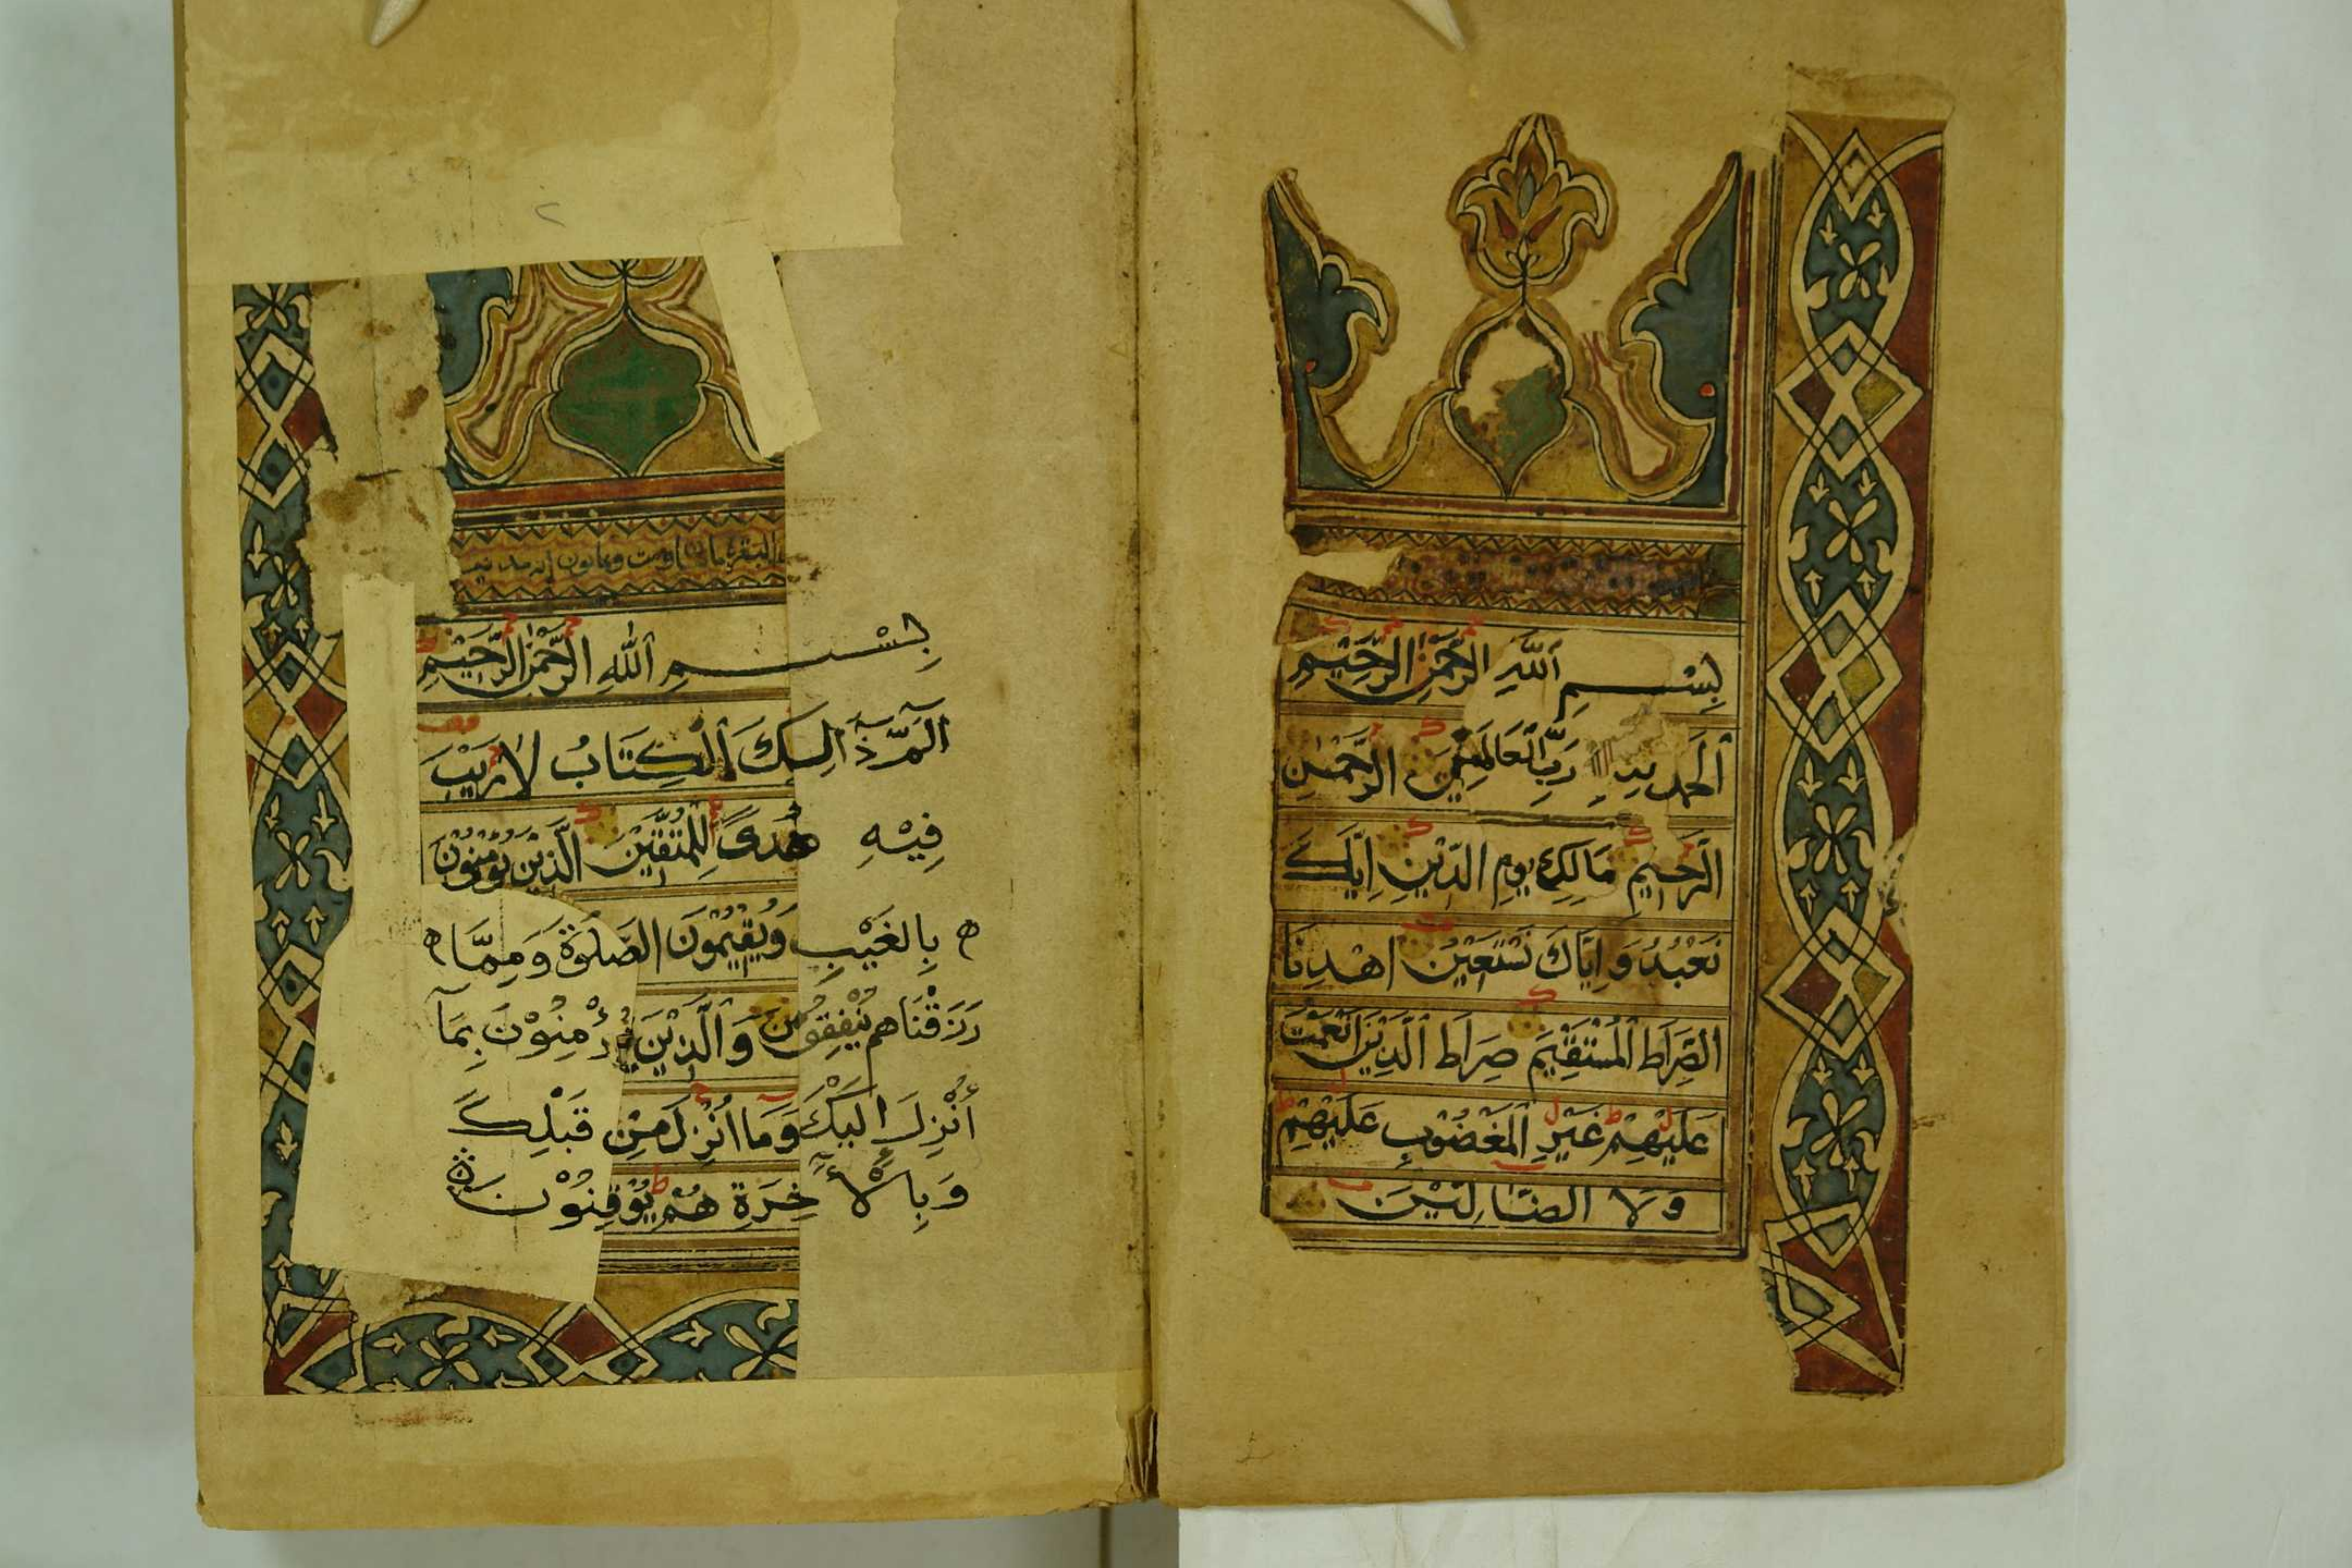 بِسْمِ اللهِ الرَّحْمٰنِ الرَّحِيْمِ
اَلْحَمْدُ لِلهِ رَبِّ الْعَالَمِيْنَ الرَّحْمٰنِ
الرَّحِيْمِ مَالِكِ يَوْمِ الدِّيْنِ اِيَّاكَ
نَعْبُدُ وَ اِيَّاكَ نَسْتَعِيْنُ اهْدِنَا
الصِّرَاطَ الْمُسْتَقِيْمَ صِرَاطَ الَّذِيْنَ اَنْعَمْتَ
عَلَيْهِمْ غَيْرِ الْمَغْضُوْبِ عَلَيْهِمْ
وَلَا الضَّالِّيْنَ
البقرة مائتان وست وثمانون آية
بِسْمِ اللهِ الرَّحْمٰنِ الرَّحِيْمِ
الٓمّٓ ذَالِكَ الْكِتَابُ لَا رَيْبَ
فِيْهِ هُدًى لِلْمُتَّقِيْنَ الَّذِيْنَ يُؤْمِنُوْنَ
بِالْغَيْبِ وَيُقِيْمُوْنَ الصَّلٰوةَ وَ مِمَّا
رَزَقْنَاهُمْ يُنْفِقُوْنَ وَالَّذِيْنَ يُؤْمِنُوْنَ بِمَآ
أُنْزِلَ اِلَيْكَ وَمَا اُنْزِلَ مِنْ قَبْلِكَ
وَبِالْأٓخِرَةِ هُمْ يُوْقِنُوْنَ